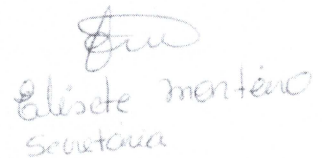 Elisete Monteiro
Secretária